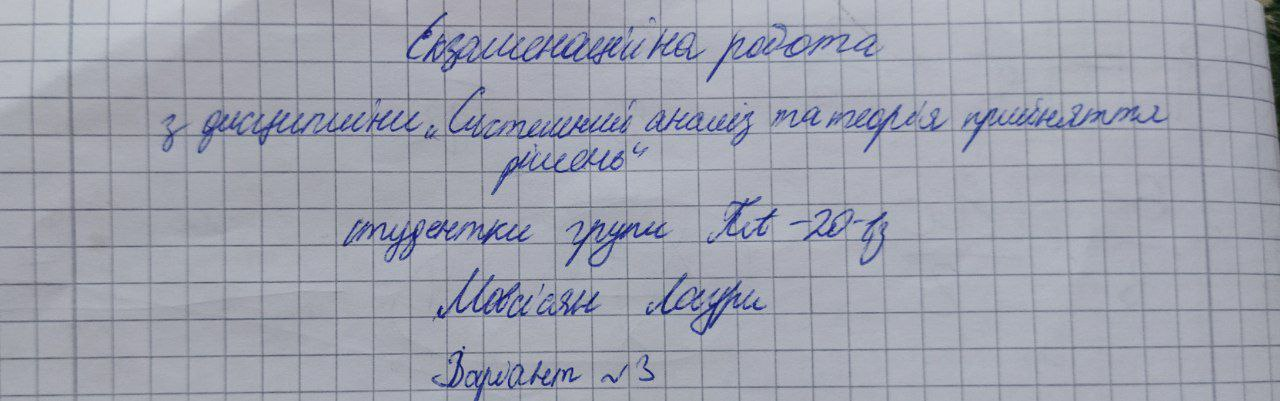 Екзаменаційна робота
з дисципліни „Системний аналіз та теорія прийняття
рішень“
студентки групи
Мовсісян Лаури
Варіант №3